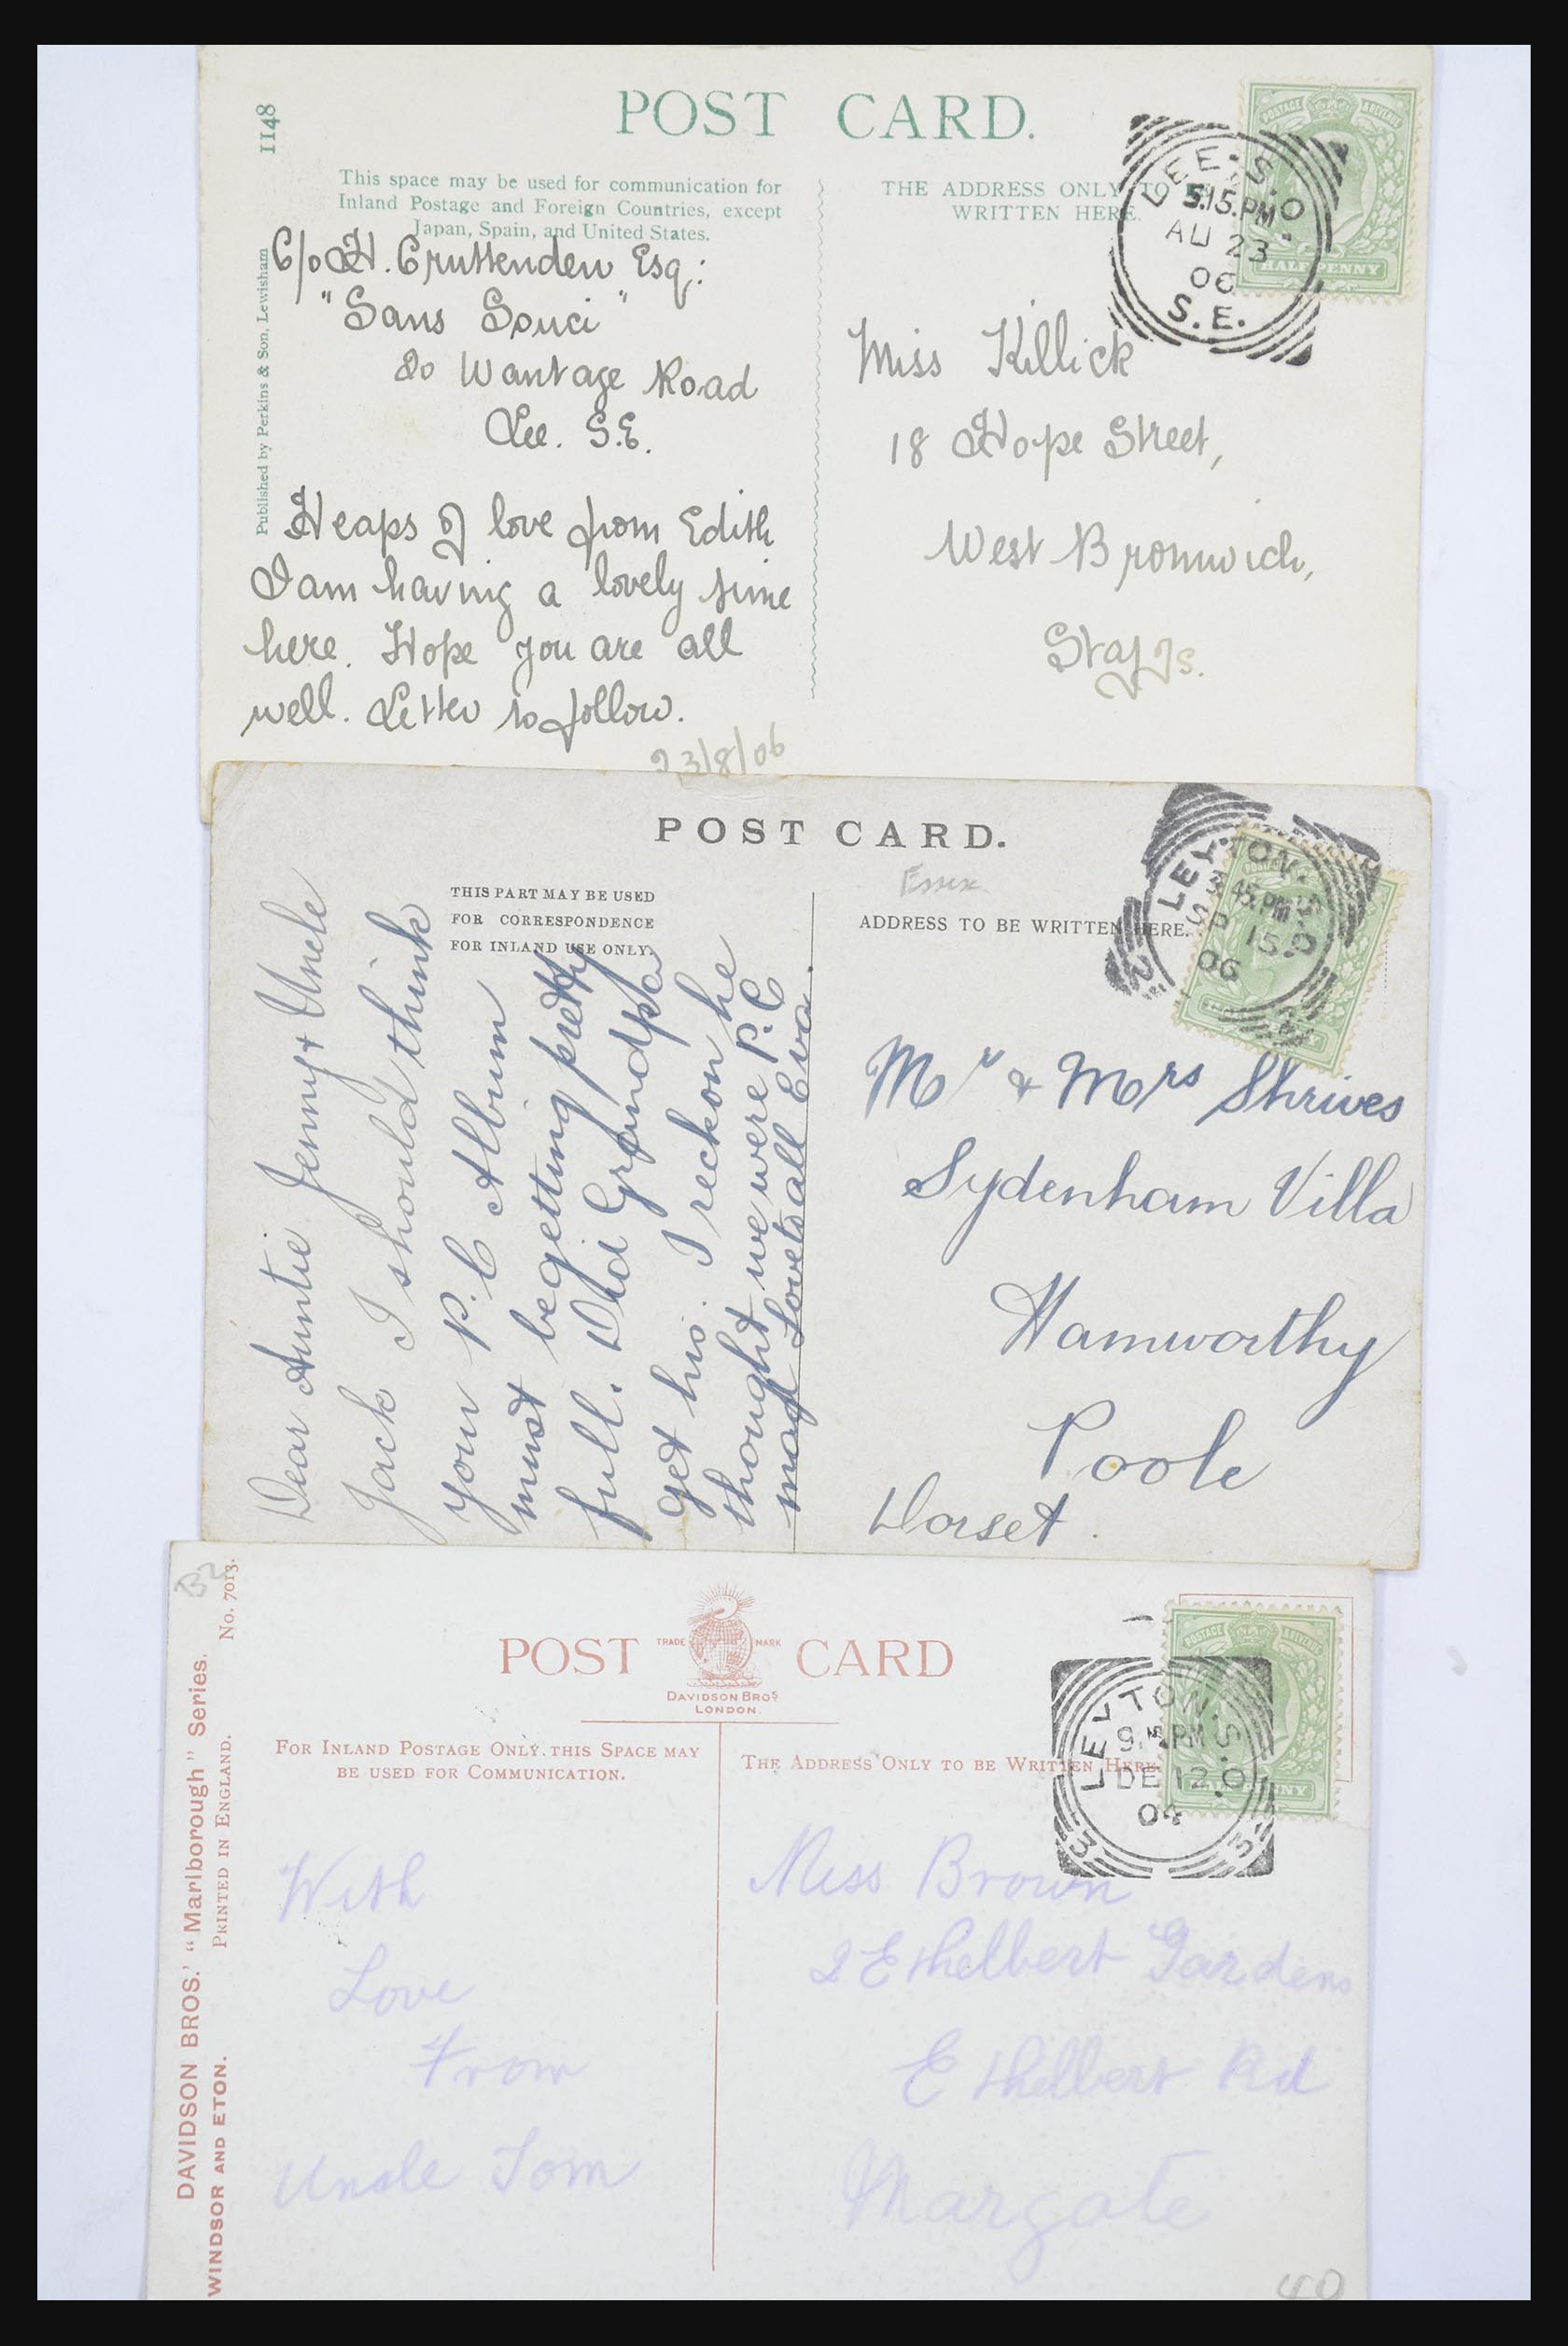 1148
POST CARD.
This space may be used for communication for
Inland Postage and Foreign Countries, except
Japan, Spain, and United States.
THE ADDRESS ONLY TO
WRITTEN HERE.
LEE. S.O
5.15.PM
AU 23
06
S.E.
POSTAGE
HALFPENNY
Published by Perkins & Son, Lewisham
C/o H. Cruttenden Esq:
"Sans Souci"
80 Wantage Road
Lee. S.E.
Heaps of love from Edith
I am having a lovely time
here. Hope you are all
well. Letter to follow.
23/8/06
Miss Killick
18 Hope Street,
West Bromwich,
Staffs.
POST CARD.
Essex
THIS PART MAY BE USED
FOR CORRESPONDENCE
FOR INLAND USE ONLY.
ADDRESS TO BE WRITTEN HERE.
LEYTON. S.O
3 45.PM
SP 15
06
Dear Auntie Jenny & Uncle
Jack I should think
your P.C Album
must be getting pretty
full. Did Grandpa
get his. I reckon he
thought we were P.C
mad Love to all Eva.
Mr & Mrs Shrives
Sydenham Villa
Hamworthy
Poole
Dorset.
B2
No. 7013.
DAVIDSON BROS.' "Marlborough" Series.
PRINTED IN ENGLAND.
WINDSOR AND ETON.
POST CARD
TRADE MARK
DAVIDSON BROS
LONDON.
FOR INLAND POSTAGE ONLY. THIS SPACE MAY
BE USED FOR COMMUNICATION.
THE ADDRESS ONLY TO BE WRITTEN HERE
POSTAGE
LEYTON. S.O
9.15PM
DE 12
04
3 3
With
Love
From
Uncle Tom
Miss Brown
2 Ethelbert Gardens
Ethelbert Rd
Margate
40